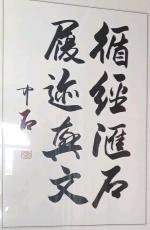 循經滙石
履迹興文
中石